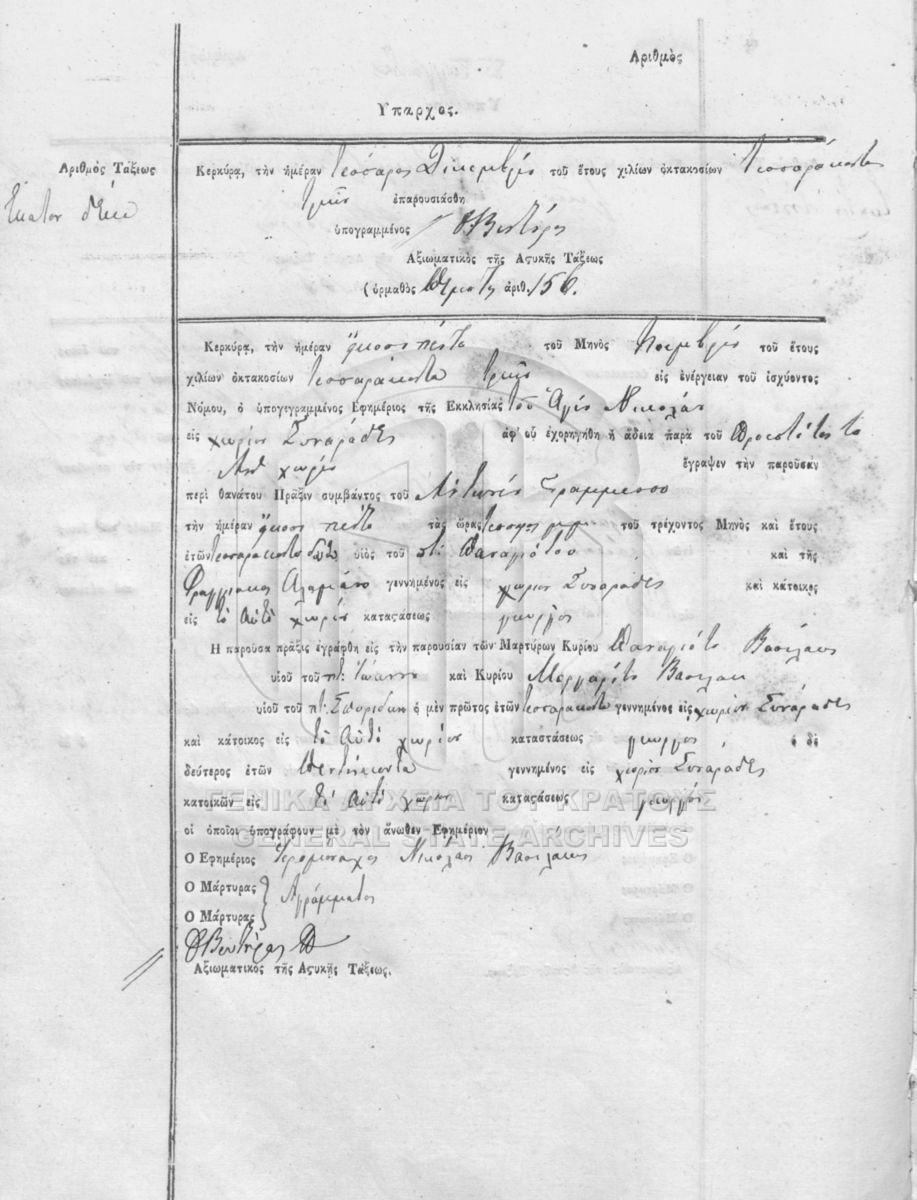 Αριθμὸς
Υπαρχος.
Αριθμὸς Τάξεως
Εκατον δέκα
Κερκύρα, τὴν ἡμέραν τέσσαρας Δικεμβρίου τοῦ ἔτους χιλίων ὀκτακοσίων τεσσαράκοντα
τρία ἐπαρουσιάσθη
ὑπογραμμένος
Αξιωματικὸς τῆς Αστυκῆς Τάξεως
(ὁρμαθὸς ἀριθ. 156.
Κερκύρᾳ, τὴν ἡμέραν ἤκοσι πέντε τοῦ Μηνὸς Νοεμβρίου τοῦ ἔτους
χιλίων ὀκτακοσίων τεσσαράκοντα τρία εἰς ἐνέργειαν τοῦ ἰσχύοντος
Νόμου, ὁ ὑπογεγραμμένος Εφημέριος τῆς Εκκλησίας τοῦ Ἁγίου Νικολάου
εἰς χωρίον Συναράδες ἀφ' οὗ ἐχορηγήθη ἡ ἄδεια παρὰ τοῦ Προεστότος το
χωρίου ἔγραψεν τὴν παροῦσαν
περὶ θανάτου Πρᾶξιν συμβάντος τοῦ Αντωνίου Γραμμένου
τὴν ἡμέραν ἤκοσι πέντε τὰς ὥρας τοῦ τρέχοντος Μηνὸς καὶ ἔτους
ἐτῶν τεσσαράκοντα υἱὸς τοῦ ποτ: Παναγιότου καὶ τῆς
Φραγγίσκας Αλαμάνο γεννημένος εἰς χωρίον Συναράδες καὶ κάτοικος
εἰς τὸ Αὐτὸ χωρίον καταςάσεως γεωργὸς
Η παροῦσα πρᾶξις ἐγράφθη εἰς τὴν παρουσίαν τῶν Μαρτύρων Κυρίου Παναγιότο Βασιλάκη
υἱοῦ τοῦ ποτ: Ἰωάννου καὶ Κυρίου Μαργαρίτο Βασιλάκη
υἱοῦ τοῦ ποτ: Σπυρίδων ὁ μὲν πρῶτος ἐτῶν τεσσαράκοντα γεννημένος εἰς χωρίον Συναράδες
καὶ κάτοικος εἰς τὸ Αὐτὸ χωρίον καταστάσεως γεωργὸς ὁ δὲ
δεύτερος ἐτῶν πεντήκοντα γεννημένος εἰς χωρίον Συναράδες
κατοικῶν εἰς τὸ αὐτὸ χωρίον καταςάσεως γεωργὸς
ΓΕΝΙΚΑ ΑΡΧΕΙΑ ΤΟΥ ΚΡΑΤΟΥΣ
οἱ ὁποῖοι ὑπογράφουν μὲ τὸν ἄνωθεν Εφημέριον
GENERAL STATE ARCHIVES
Ο Εφημέριος Ἱερομόναχος Νικόλαος Βασιλάκης
Ο Μάρτυρας
Ἀγράμματος
Ο Μάρτυρας
Αξιωματικὸς τῆς Αςυκῆς Τάξεως.